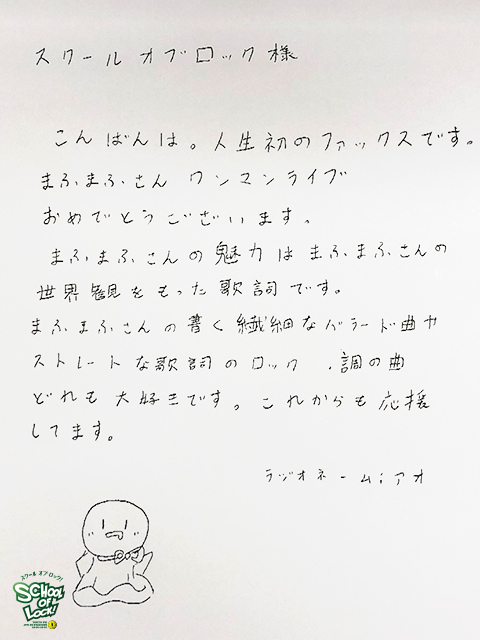 スクールオブロック様
こんばんは。人生初のファックスです。
まふまふさん ワンマンライブ
おめでとうございます。
まふまふさんの魅力はまふまふさんの
世界観をもった歌詞です。
まふまふさんの書く繊細なバラード曲や
ストレートな歌詞のロック調の曲
どれも大好きです。これからも応援
してます。
ラジオネーム:アオ
スクール オブ ロック!
SCHOOL
OF
LOCK!